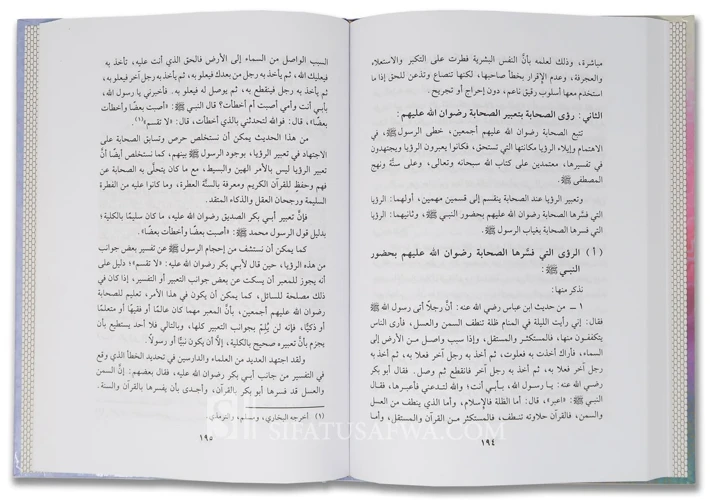 مباشرة، وذلك لعلمه بأنَّ النفس البشرية فطرت على التكبر والاستعلاء
والعجرفة، وعدم الإقرار بخطأ صاحبها، لكنها تنصاع وتذعن للحق إذا ما
استخدم معها أسلوب رقيق ناعم، دون إحراج أو تجريح.
الثاني: رؤى الصحابة بتعبير الصحابة رضوان الله عليهم:
تتبع الصحابة رضوان الله عليهم أجمعين، خطى الرسول ﷺ، في
الاهتمام وإيلاء الرؤيا مكانتها التي تستحق، فكانوا يعبرون الرؤيا ويجتهدون
في تفسيرها، معتمدين على كتاب الله سبحانه وتعالى، وعلى سنَّة ونهج
المصطفى ﷺ.
وتعبير الرؤيا عند الصحابة ينقسم إلى قسمين مهمين، أولهما: الرؤيا
التي فسَّرها الصحابة رضوان الله عليهم بحضور النبي ﷺ، وثانيهما: الرؤيا
التي فسَّرها الصحابة بغياب الرسول ﷺ.
( أ ) الرؤى التي فسَّرها الصحابة رضوان الله عليهم بحضور
النبي ﷺ:
نذكر منها:
١ ـ من حديث ابن عباس رضي الله عنه: أنَّ رجلاً أتى رسول الله ﷺ
فقال: إني رأيت الليلة في المنام ظلة تنطف السمن والعسل، فأرى الناس
يتكففون منها، فالمستكثر والمستقل، وإذا سبب واصل من الأرض إلى
السماء، فأراك أخذت به فعلوت، ثم أخذ به رجل آخر فعلا به، ثم أخذ به
رجل آخر فعلا به، ثم أخذ به رجل آخر فانقطع ثم وصل. فقال أبو بكر
رضي الله عنه: يا رسول الله، بـأبي أنت؛ والله لتدعني فأعبرها، فقال
النبي ﷺ: «اعبر»، قال: أما الظلة فالإسلام، وأما الذي ينطف من العسل
والسمن، فالقرآن حلاوته تنطف، فالمستكثر من القرآن والمستقل، وأما
١٩٤
السبب الواصل من السماء إلى الأرض فالحق الذي أنت عليه، تأخذ به
فيعليك الله، ثم يأخذ به رجل من بعدك فيعلو به، ثم يأخذ به رجل آخر فيعلو به،
ثم يأخذ به رجل فينقطع به، ثم يوصل له فيعلو به. فأخبرني يا رسول الله،
بأبي أنت وأمي أصبت أم أخطأت؟ قال النبي ﷺ: «أصبت بعضًا وأخطأت
بعضًا»، قال: فوالله لتحدثني بالذي أخطأت، قال: «لا تقسم»(١).
من هذا الحديث يمكن أن نستخلص حرص وتسابق الصحابة على
الاجتهاد في تعبير الرؤيا، بوجود الرسول ﷺ بينهم، كما نستخلص أيضًا أنَّ
تعبير الرؤيا ليس بالأمر الهين والبسيط، مع ما كان يتحلَّى به الصحابة عن
فهم وحفظٍ للقرآن الكريم ومعرفة بالسنَّة العطرة، وما كانوا عليه من الفطرة
السليمة ورجحان العقل والذكاء المتقد.
فإنَّ تعبير أبي بكر الصديق رضوان الله عليه، ما كان سليمًا بالكلية؛
بدليل قول الرسول محمد ﷺ: «أصبت بعضًا وأخطأت بعضًا».
كما يمكن أن نستشف من إحجام الرسول ﷺ عن تفسير بعض جوانب
من هذه الرؤيا، حين قال لأبـي بكر رضوان الله عليه: «لا تقسم»؛ دليل على
أنه يجوز للمعبر أن يسكت عن بعض جوانب التعبير أو التفسير، إذا كان في
ذلك مصلحة للسائل، كما يمكن أن يكون في هذا الأمر، تعليم للصحابة
رضوان الله عليهم أجمعين، بأنَّ المعبر مهما كان عالمًا أو فقيهًا أو متعلمًا
أو ذكيًّا، فإنه لن يُلِمَّ بجوانب التعبير كلها، وبالتالي فلا أحد يستطيع بأن
يجزم بأنَّ تعبيره صحيح بالكلية، إلَّا أن يكون نبيًّا أو رسولاً.
ولقد اجتهد العديد من العلماء والدارسين في تحديد الخطأ الذي وقع
في التفسير من جانب أبـي بكر رضوان الله عليه، فقال بعضهم: إنَّ السمن
والعسل قد فسرها أبو بكر بالقرآن، وأجدى بأن يفسرها بالقرآن والسنة.
(١) أخرجه البخاري، ومسلم، والترمذي.
١٩٥
SIFATUSAFWA.COM